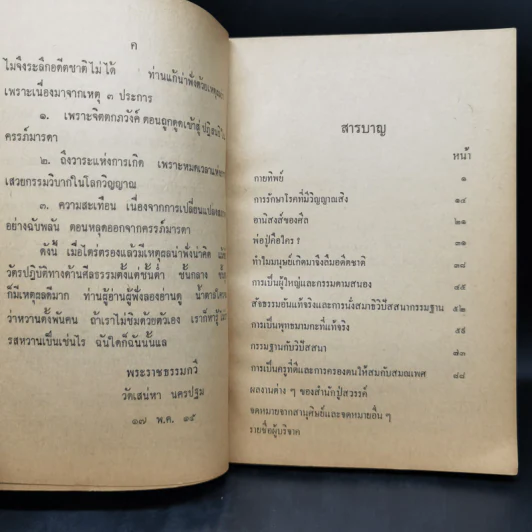 ค
ไม่จึงระลึกอดีตชาติไม่ได้ ท่านแก้น่าฟังด้วยเหตุผล
เพราะเนื่องมาจากเหตุ ๓ ประการ
๑. เพราะจิตตกภวังค์ ตอนถูกดูดเข้าสู่ปฏิสนธิ
ครรภ์มารดา
๒. ถึงวาระแห่งการเกิด เพราะหมดเวลาแห่งการ
เสวยกรรมวิบากในโลกวิญญาณ
๓. ความสะเทือน เนื่องจากการเปลี่ยนแปลง
อย่างฉับพลัน ตอนหลุดออกจากครรภ์มารดา
ดังนี้ เมื่อไตร่ตรองแล้วมีเหตุผลน่าฟังน่าคิด แม้
วัตรปฏิบัติทางด้านศีลธรรมตั้งแต่ชั้นต่ำ ชั้นกลาง
ก็มีเหตุผลดีมาก ท่านผู้อ่านผู้ฟังลองอ่านดู น้ำตาล
ว่าหวานตั้งพันคน ถ้าเราไม่ชิมด้วยตัวเอง เราก็หารู้
รสหวานเป็นเช่นไร ฉันใดก็ฉันนั้นแล
พระราชธรรมกวี
วัดเสน่หา นครปฐม
๑๗ พ.ค. ๑๕
สารบาญ
หน้า
กายทิพย์ ๑
การรักษาโรคที่มีวิญญาณสิง ๑๔
อานิสงส์ของศีล ๒๑
พ่อปู่คือใคร ? ๓๑
ทำไมมนุษย์เกิดมาจึงลืมอดีตชาติ ๓๘
การเป็นผู้ใหญ่และกรรมตามสนอง ๔๕
สัจธรรมอันแท้จริงและการนั่งสมาธิวิปัสสนากรรมฐาน ๕๒
การเป็นพุทธมามกะที่แท้จริง ๕๕
กรรมฐานกับวิปัสสนา ๗๓
การเป็นครูที่ดีและการครองตนให้สมกับสมณเพศ ๘๘
ผลงานต่าง ๆ ของสำนักปู่สวรรค์
จดหมายจากสานุศิษย์และจดหมายอื่น ๆ
รายชื่อผู้บริจาค